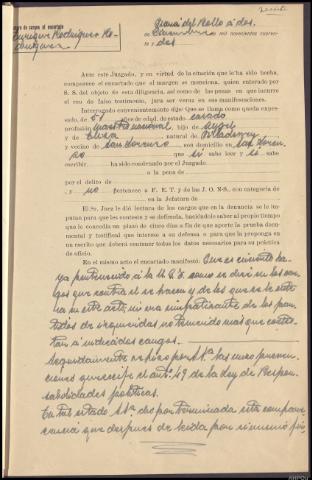 Diligencia de cargos al encartado
Enrique Rodríguez Ro-
dríguez
Viana del Bollo a dos
de mil novecientos cuaren-
ta y dos
Ante este Juzgado, y en virtud de la citación que le ha sido hecha,
comparece el encartado que al margen se menciona, quien enterado por
S. S. del objeto de esta diligencia, así como de las penas en que incurre
el reo de falso testimonio, jura ser veraz en sus manifestaciones.
Interrogado convenientemente dice: Que se llama como queda expre-
sado, de 51 años de edad, de estado casado
profesión Maestro nacional, hijo de Angel
y de Elvira natural de
y vecino de San Lorenzo con domicilio en San Loren-
zo que si sabe leer y si sabe
escribir ha sido condenado por el Juzgado
a la pena de
por el delito de
y no pertenece a F. E. T. y de las J. O. N-S. con categoría de
en la Jefatura de
El Sr. Juez le dió lectura de los cargos que en la denuncia se le im-
putan para que los conteste y se defienda, haciéndole saber al propio tiempo
que le concedía un plazo de cinco días a fin de que aporte la prueba docu-
mental y testifical que interese a su defensa o para que la proponga en
un escrito que deberá contener todos los datos necesarios para su práctica
de oficio.
En el mismo acto el encartado manifestó: Que es cierto ha-
ya pertenecido a la como se dice en los car-
gos que contra él se hacen y de los que se ente-
ra en este acto, ni era simpatizante de los par-
tidos de izquierdas no teniendo mas que contes-
tar a indicados cargos.
Seguidamente se hizo por Sª. las prevencio-
nes que recibe el artº 49 de la Ley de Respon-
sabilidades políticas.
En tal estado Sª. dió por terminada esta compare-
cencia que después de leída por renuncia